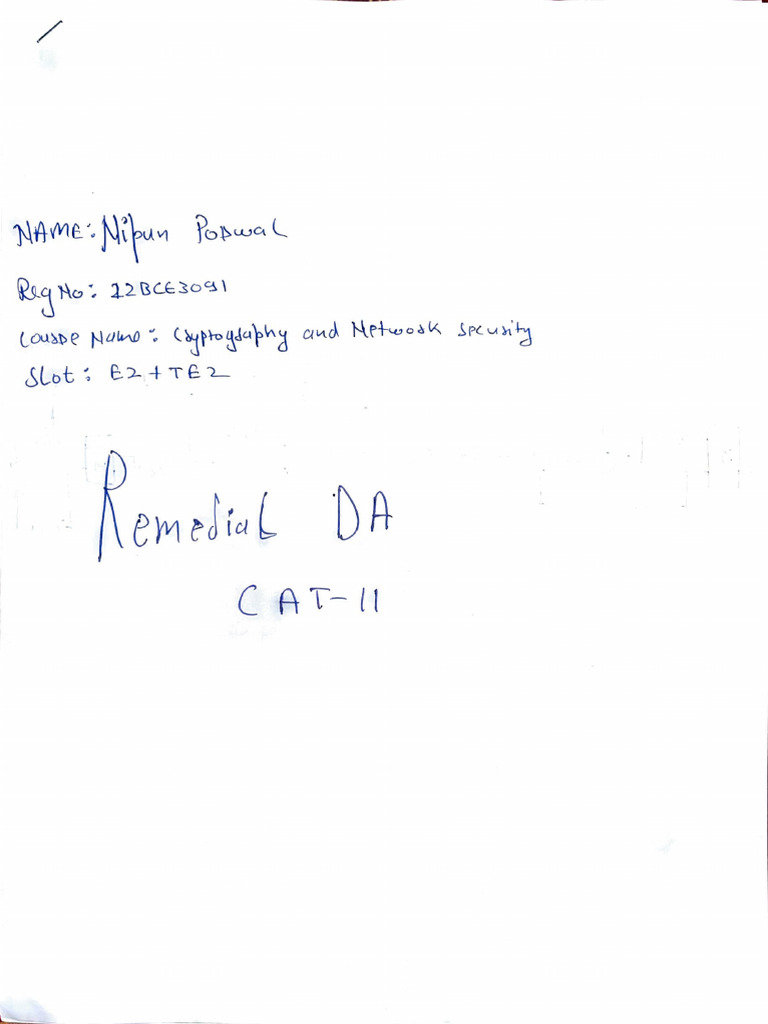 NAME: Nipun Porwal
Reg No: 22BCE3091
Course Name: Cryptography and Network Security
Slot: E2+TE2
Remedial DA
CAT-II